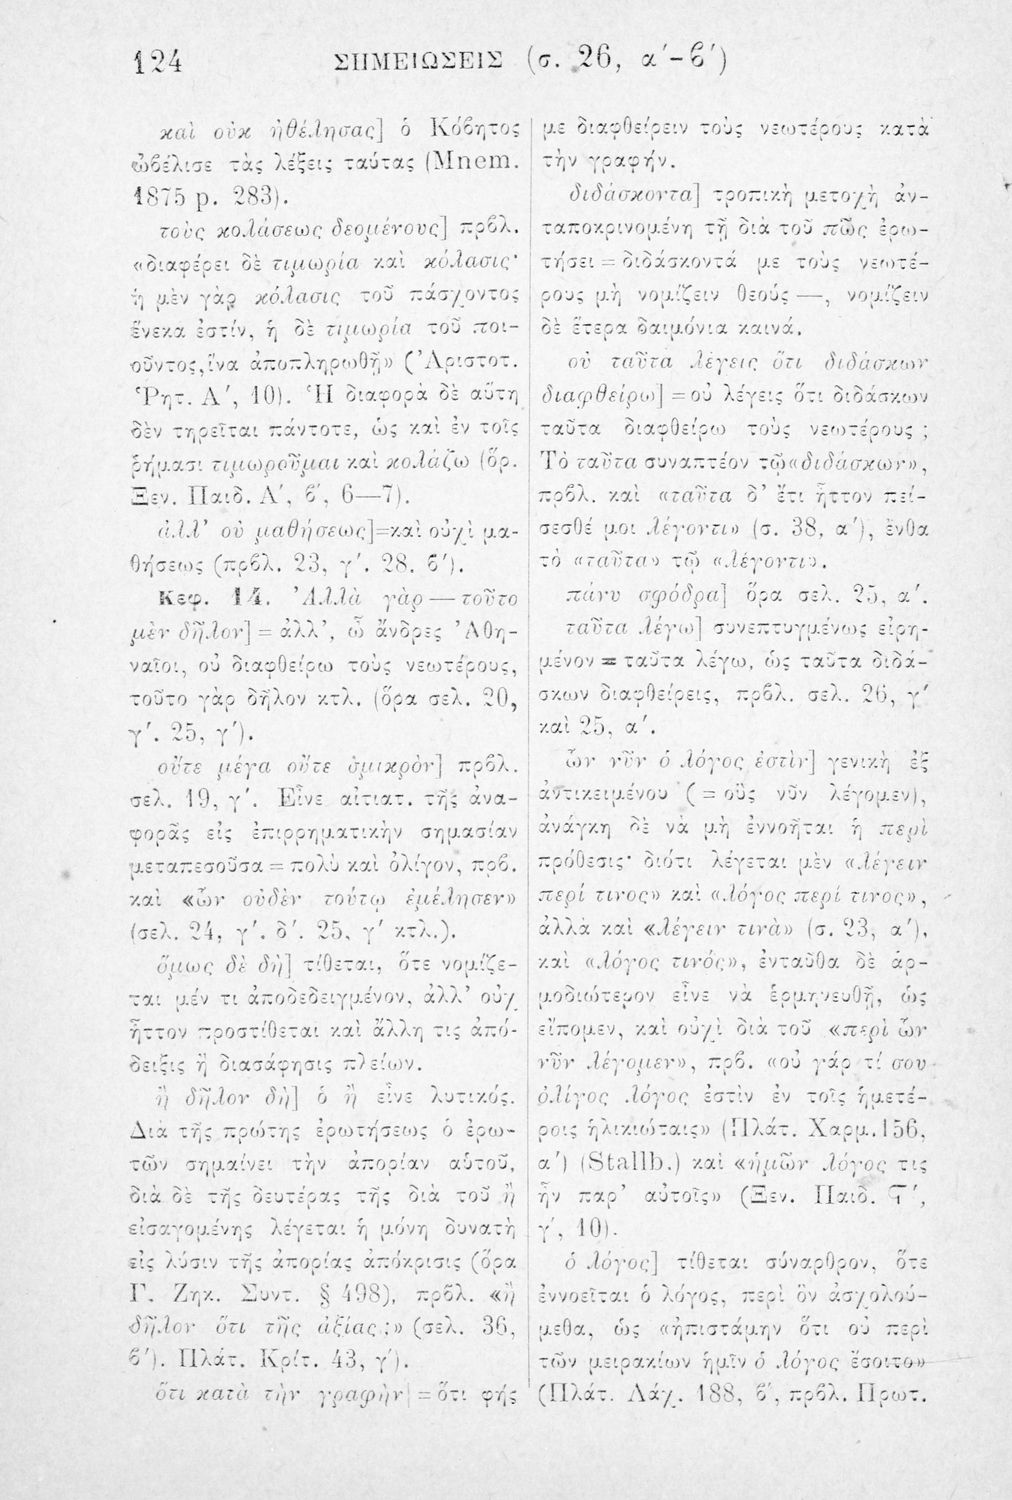 124 ΣΗΜΕΙΩΣΕΙΣ (σ. 26, α′-β′)
καὶ οὐκ ἠθέλησας] ὁ Κόβητος
ὠβέλισε τὰς λέξεις ταύτας (Mnem.
1875 p. 283).
τοὺς κολάσεως δεομένους] πρβλ.
«διαφέρει δὲ τιμωρία καὶ κόλασις·
ἡ μὲν γὰρ κόλασις τοῦ πάσχοντος
ἕνεκα ἐστίν, ἡ δὲ τιμωρία τοῦ ποι-
οῦντος, ἵνα ἀποπληρωθῇ» (Ἀριστοτ.
Ῥητ. Α′, 10). Ἡ διαφορὰ δὲ αὕτη
δὲν τηρεῖται πάντοτε, ὡς καὶ ἐν τοῖς
ῥήμασι τιμωροῦμαι καὶ κολάζω (ὅρ.
Ξεν. Παιδ. Α′, β′, 6—7).
ἀλλ’ οὐ μαθήσεως]=καὶ οὐχὶ μα-
θήσεως (πρβλ. 23, γ′. 28. β′).
Κεφ. 14. Ἀλλὰ γὰρ — τοῦτο
μὲν δῆλον] = ἀλλ’, ὦ ἄνδρες Ἀθη-
ναῖοι, οὐ διαφθείρω τοὺς νεωτέρους,
τοῦτο γὰρ δῆλον κτλ. (ὅρα σελ. 20,
γ′. 25, γ′).
οὔτε μέγα οὔτε σμικρὸν] πρβλ.
σελ. 19, γ′. Εἶνε αἰτιατ. τῆς ἀνα-
φορᾶς εἰς ἐπιρρηματικὴν σημασίαν
μεταπεσοῦσα = πολὺ καὶ ὀλίγον, πρβ.
καὶ «ὧν οὐδὲν τούτῳ ἐμέλησεν»
(σελ. 24, γ′. δ′. 25, γ′ κτλ.).
ὅμως δὲ δὴ] τίθεται, ὅτε νομίζε-
ται μέν τι ἀποδεδειγμένον, ἀλλ’ οὐχ
ἧττον προστίθεται καὶ ἄλλη τις ἀπό-
δειξις ἢ διασάφησις πλείων.
ἢ δῆλον δὴ] ὁ ἢ εἶνε λυτικός.
Διὰ τῆς πρώτης ἐρωτήσεως ὁ ἐρω-
τῶν σημαίνει τὴν ἀπορίαν αὑτοῦ,
διὰ δὲ τῆς δευτέρας τῆς διὰ τοῦ ἢ
εἰσαγομένης λέγεται ἡ μόνη δυνατὴ
εἰς λύσιν τῆς ἀπορίας ἀπόκρισις (ὅρα
Γ. Ζηκ. Συντ. § 498), πρβλ. «ἢ
δῆλον ὅτι τῆς ἀξίας;» (σελ. 36,
β′). Πλάτ. Κρίτ. 43, γ′).
ὅτι κατὰ τὴν γραφὴν] = ὅτι φὴς
με διαφθείρειν τοὺς νεωτέρους κατὰ
τὴν γραφήν.
διδάσκοντα] τροπικὴ μετοχὴ ἀν-
ταποκρινομένη τῇ διὰ τοῦ πῶς ἐρω-
τήσει = διδάσκοντά με τοὺς νεωτέ-
ρους μὴ νομίζειν θεούς —, νομίζειν
δὲ ἕτερα δαιμόνια καινά.
οὐ ταῦτα λέγεις ὅτι διδάσκων
διαφθείρω] = οὐ λέγεις ὅτι διδάσκων
ταῦτα διαφθείρω τοὺς νεωτέρους ;
Τὸ ταῦτα συναπτέον τῷ «διδάσκων»,
πρβλ. καὶ «ταῦτα δ’ ἔτι ἧττον πεί-
σεσθέ μοι λέγοντι» (σ. 38, α′), ἔνθα
τὸ «ταῦτα» τῷ «λέγοντι».
πάνυ σφόδρα] ὅρα σελ. 25, α′.
ταῦτα λέγω] συνεπτυγμένως εἰρη-
μένον = ταῦτα λέγω, ὡς ταῦτα διδά-
σκων διαφθείρεις, πρβλ. σελ. 26, γ′
καὶ 25, α′.
ὧν νῦν ὁ λόγος ἐστὶν] γενικὴ ἐξ
ἀντικειμένου ( = οὓς νῦν λέγομεν),
ἀνάγκη δὲ νὰ μὴ ἐννοῆται ἡ περὶ
πρόθεσις· διότι λέγεται μὲν «λέγειν
περί τινος» καὶ «λόγος περί τινος»,
ἀλλὰ καὶ «λέγειν τινὰ» (σ. 23, α′),
καὶ «λόγος τινός», ἐνταῦθα δὲ ἁρ-
μοδιώτερον εἶνε νὰ ἑρμηνευθῇ, ὡς
εἴπομεν, καὶ οὐχὶ διὰ τοῦ «περὶ ὧν
νῦν λέγομεν», πρβ. «οὐ γάρ τί σου
ὀλίγος λόγος ἐστὶν ἐν τοῖς ἡμετέ-
ροις ἡλικιώταις» (Πλάτ. Χαρμ. 156,
α′) (Stallb.) καὶ «ἡμῶν λόγος τις
ἦν παρ’ αὐτοῖς» (Ξεν. Παιδ. Ϛ′,
γ′, 10).
ὁ λόγος] τίθεται σύναρθρον, ὅτε
ἐννοεῖται ὁ λόγος, περὶ ὃν ἀσχολού-
μεθα, ὡς «ἠπιστάμην ὅτι οὐ περὶ
τῶν μειρακίων ἡμῖν ὁ λόγος ἔσοιτο»
(Πλάτ. Λάχ. 188, β′, πρβλ. Πρωτ.